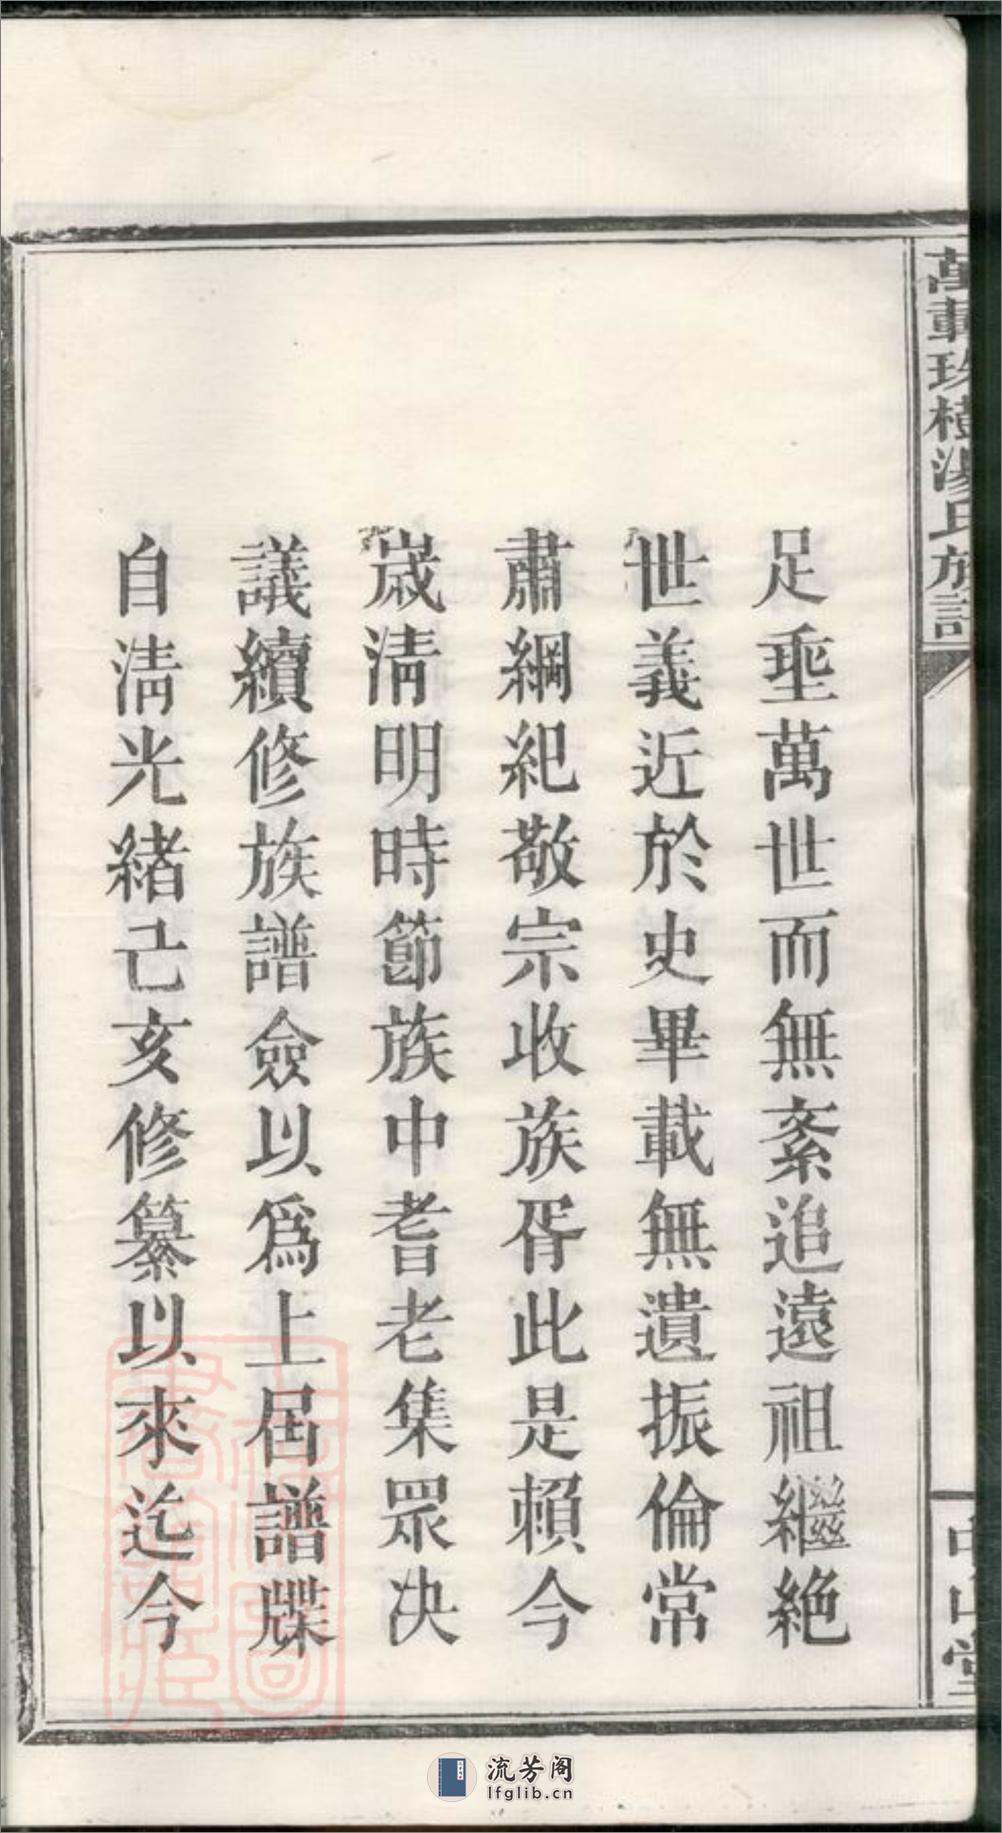 萬載珍樹湯氏族譜
足埀萬世而無紊追遠祖繼絶
世義近於史畢載無遺振倫常
肅綱紀敬宗收族胥此是賴今
歲清明時節族中耆老集眾決
議續修族譜僉以為上屆譜牒
自清光緒己亥修纂以來迄今
流芳阁
lfglib.cn